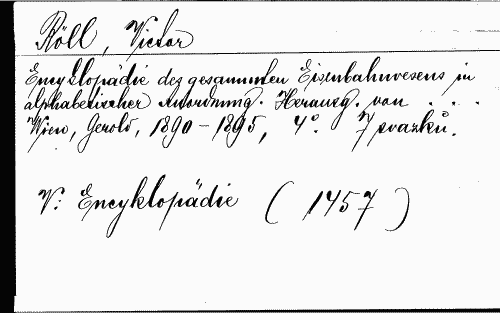 Röll, Victor
Encyklopädie des gesammten Eisenbahnwesens in
alphabetischer Anordnung. Herausg. von . . .
Wien, Gerold, 1890-1895, 4°. 7 svazků.
V: Encyklopädie (1457)